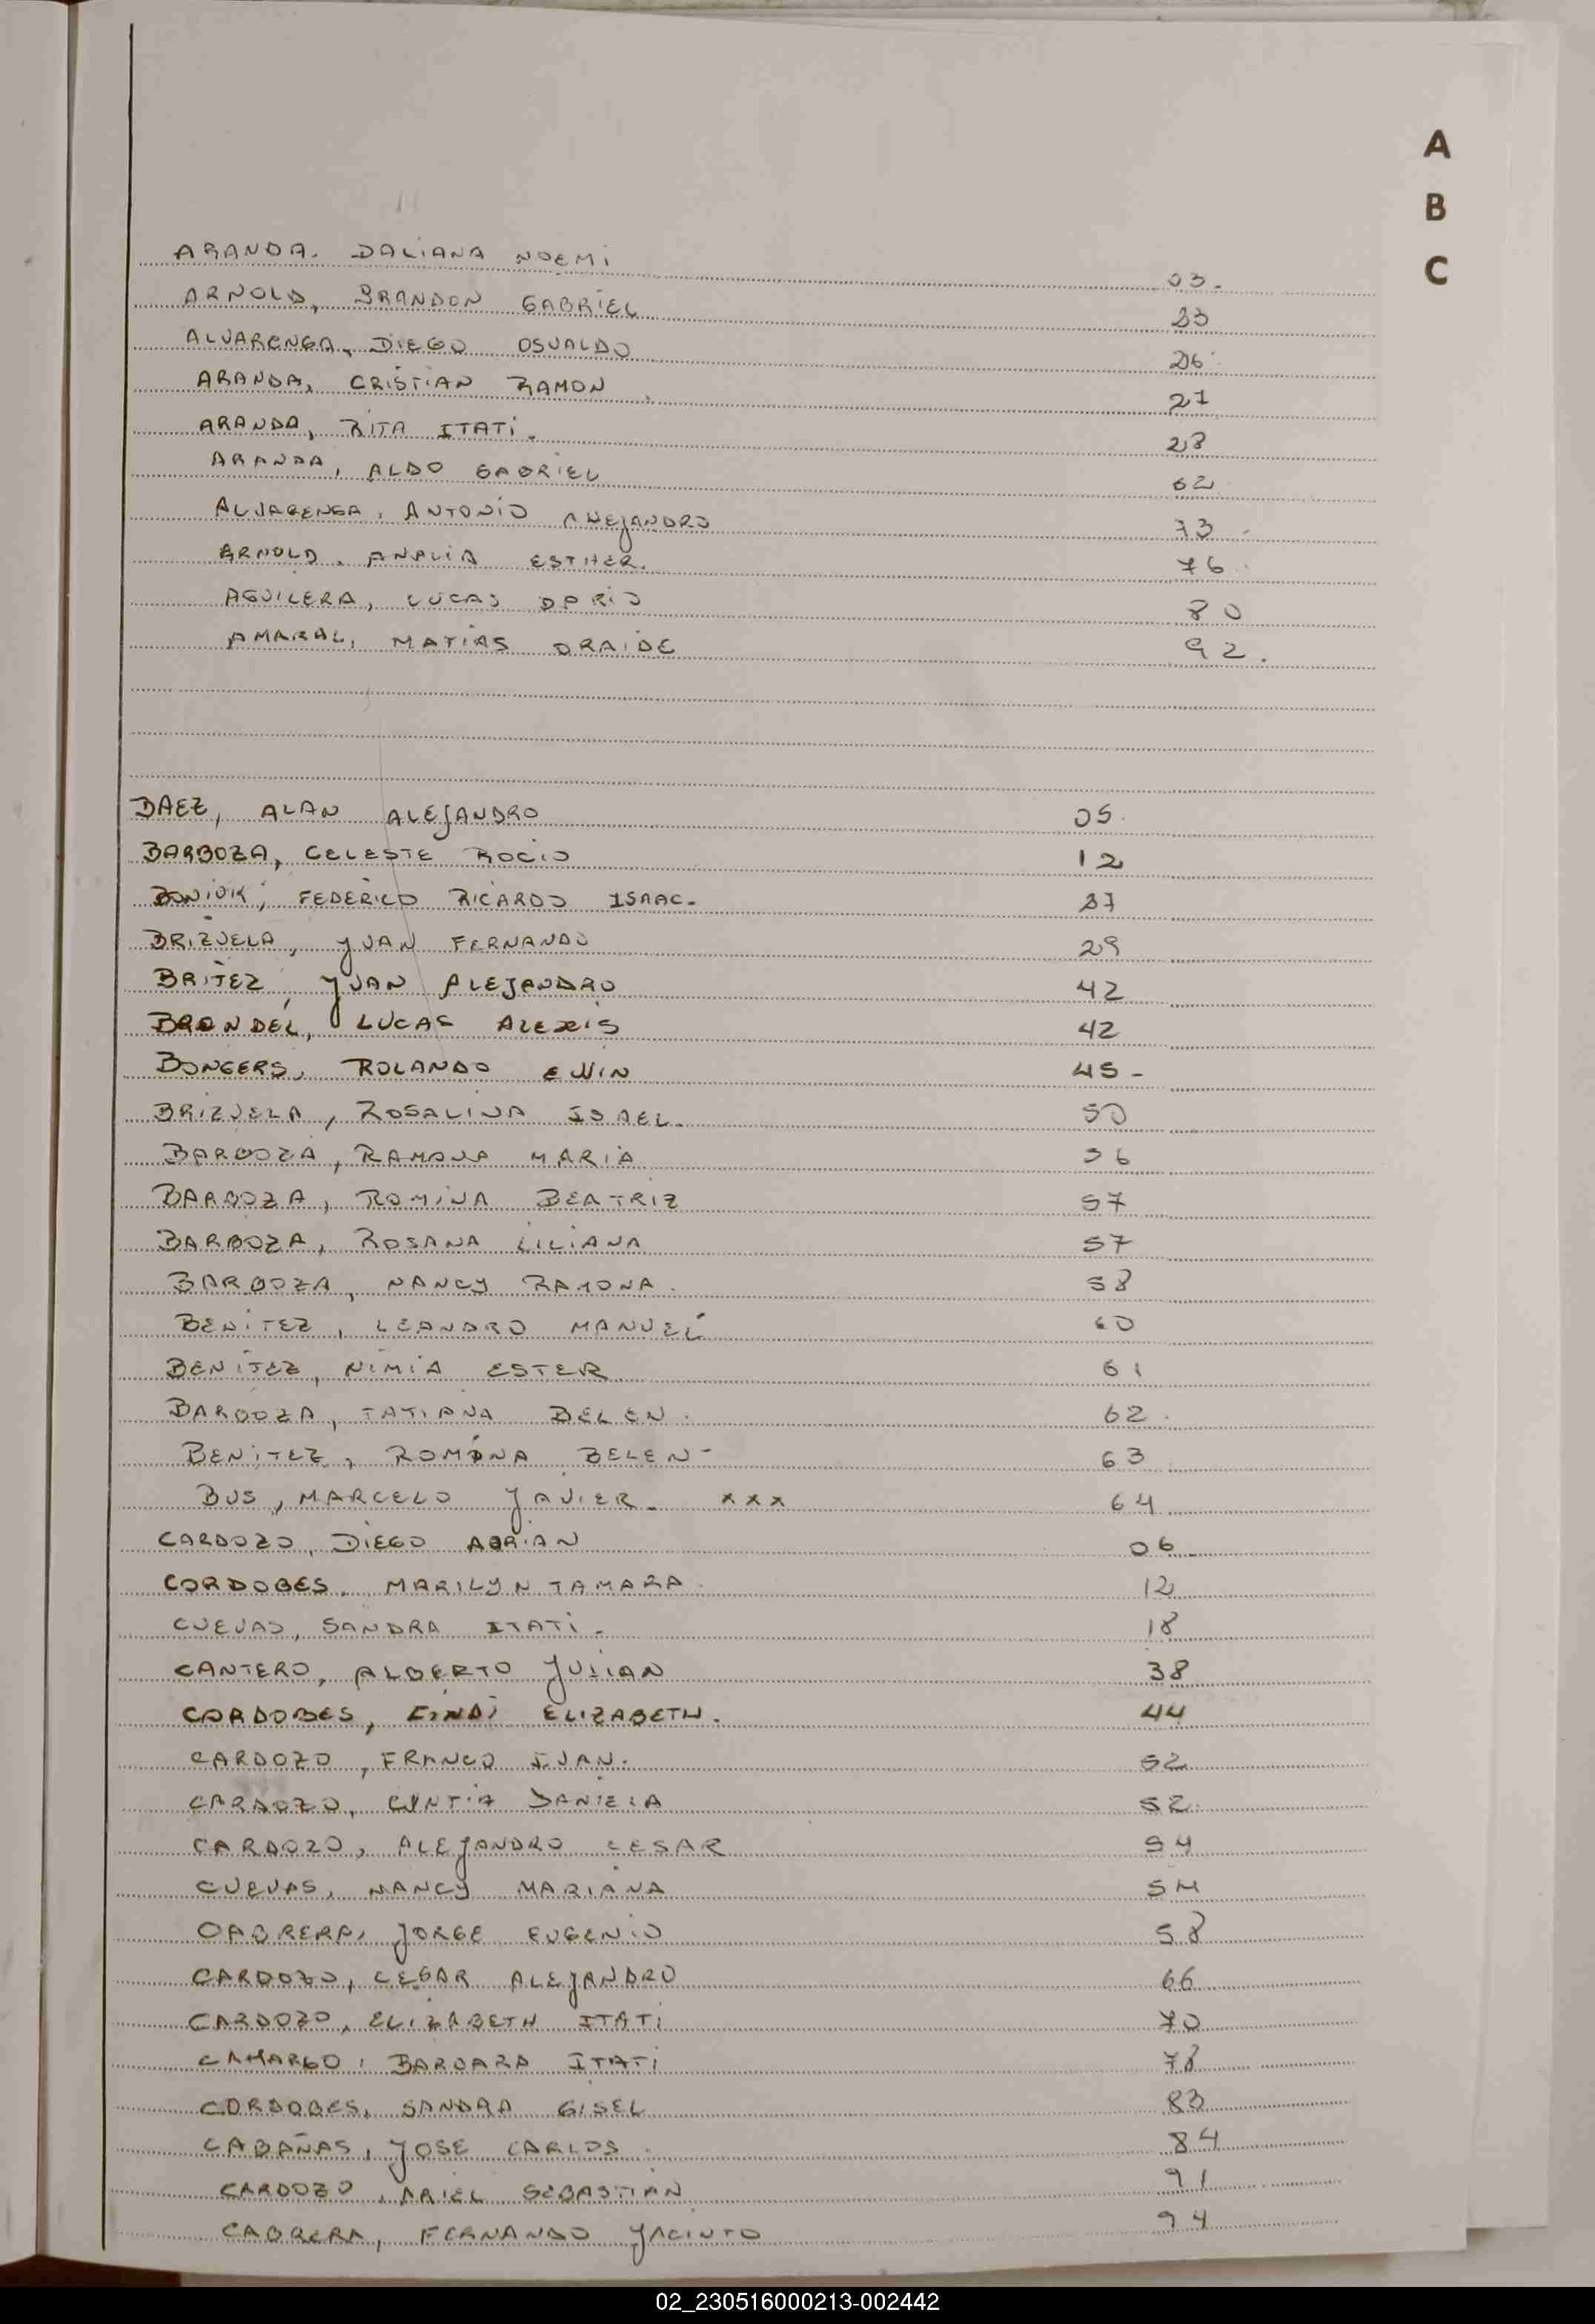 A
B
C
ARANDA. DALIANA NOEMI 03.
ARNOLD, BRANDON GABRIEL 23
ALVARENGA, DIEGO OSVALDO 26
ARANDA, CRISTIAN RAMON 27
ARANDA, RITA ITATI. 28
ARANDA, ALDO GABRIEL 62
ALVARENGA, ANTONIO ALEJANDRO 73
ARNOLD. ANALIA ESTHER. 76
AGUILERA, LUCAS DARIO 80
AMARAL, MATIAS ORAIDE 92.
BAEZ, ALAN ALEJANDRO 05
BARBOZA, CELESTE ROCIO 12
BONIUK, FEDERICO RICARDO ISAAC. 27
BRIZUELA, JUAN FERNANDO 29
BRITEZ, JUAN ALEJANDRO 42
BRONDEL, LUCAS ALEXIS 42
BONGERS, ROLANDO EWIN 45-
BRIZUELA, ROSALINA ISAEL. 50
BARBOZA, RAMONA MARIA 56
BARBOZA, ROMINA BEATRIZ 57
BARBOZA, ROSANA LILIANA 57
BARBOZA, NANCY RAMONA. 58
BENITEZ, LEANDRO MANUEL 60
BENITEZ, NIMIA ESTER 61
BARBOZA, TATIANA BELEN. 62
BENITEZ, ROMINA BELEN- 63
BUS, MARCELO JAVIER. xxx 64
CARDOZO, DIEGO ADRIAN 06
CORDOBES, MARILYN TAMARA. 12
CUEVAS, SANDRA ITATI. 18
CANTERO, ALBERTO JULIAN 38
CORDOBES, CINDI ELIZABETH. 44
CARDOZO, FRANCO IVAN. 52
CARDOZO, CINTIA DANIELA 52
CARDOZO, ALEJANDRO CESAR 54
CUEVAS, NANCY MARIANA 54
CABRERA, JORGE EUGENIO 58
CARDOZO, CESAR ALEJANDRO 66
CARDOZO, ELIZABETH ITATI 70
CAMARGO, BARBARA ITATI 78
CORDOBES, SANDRA GISEL 83
CABAÑAS, JOSE CARLOS. 84
CARDOZO, ARIEL SEBASTIAN 91
CABRERA, FERNANDO JACINTO 94
02_230516000213-002442